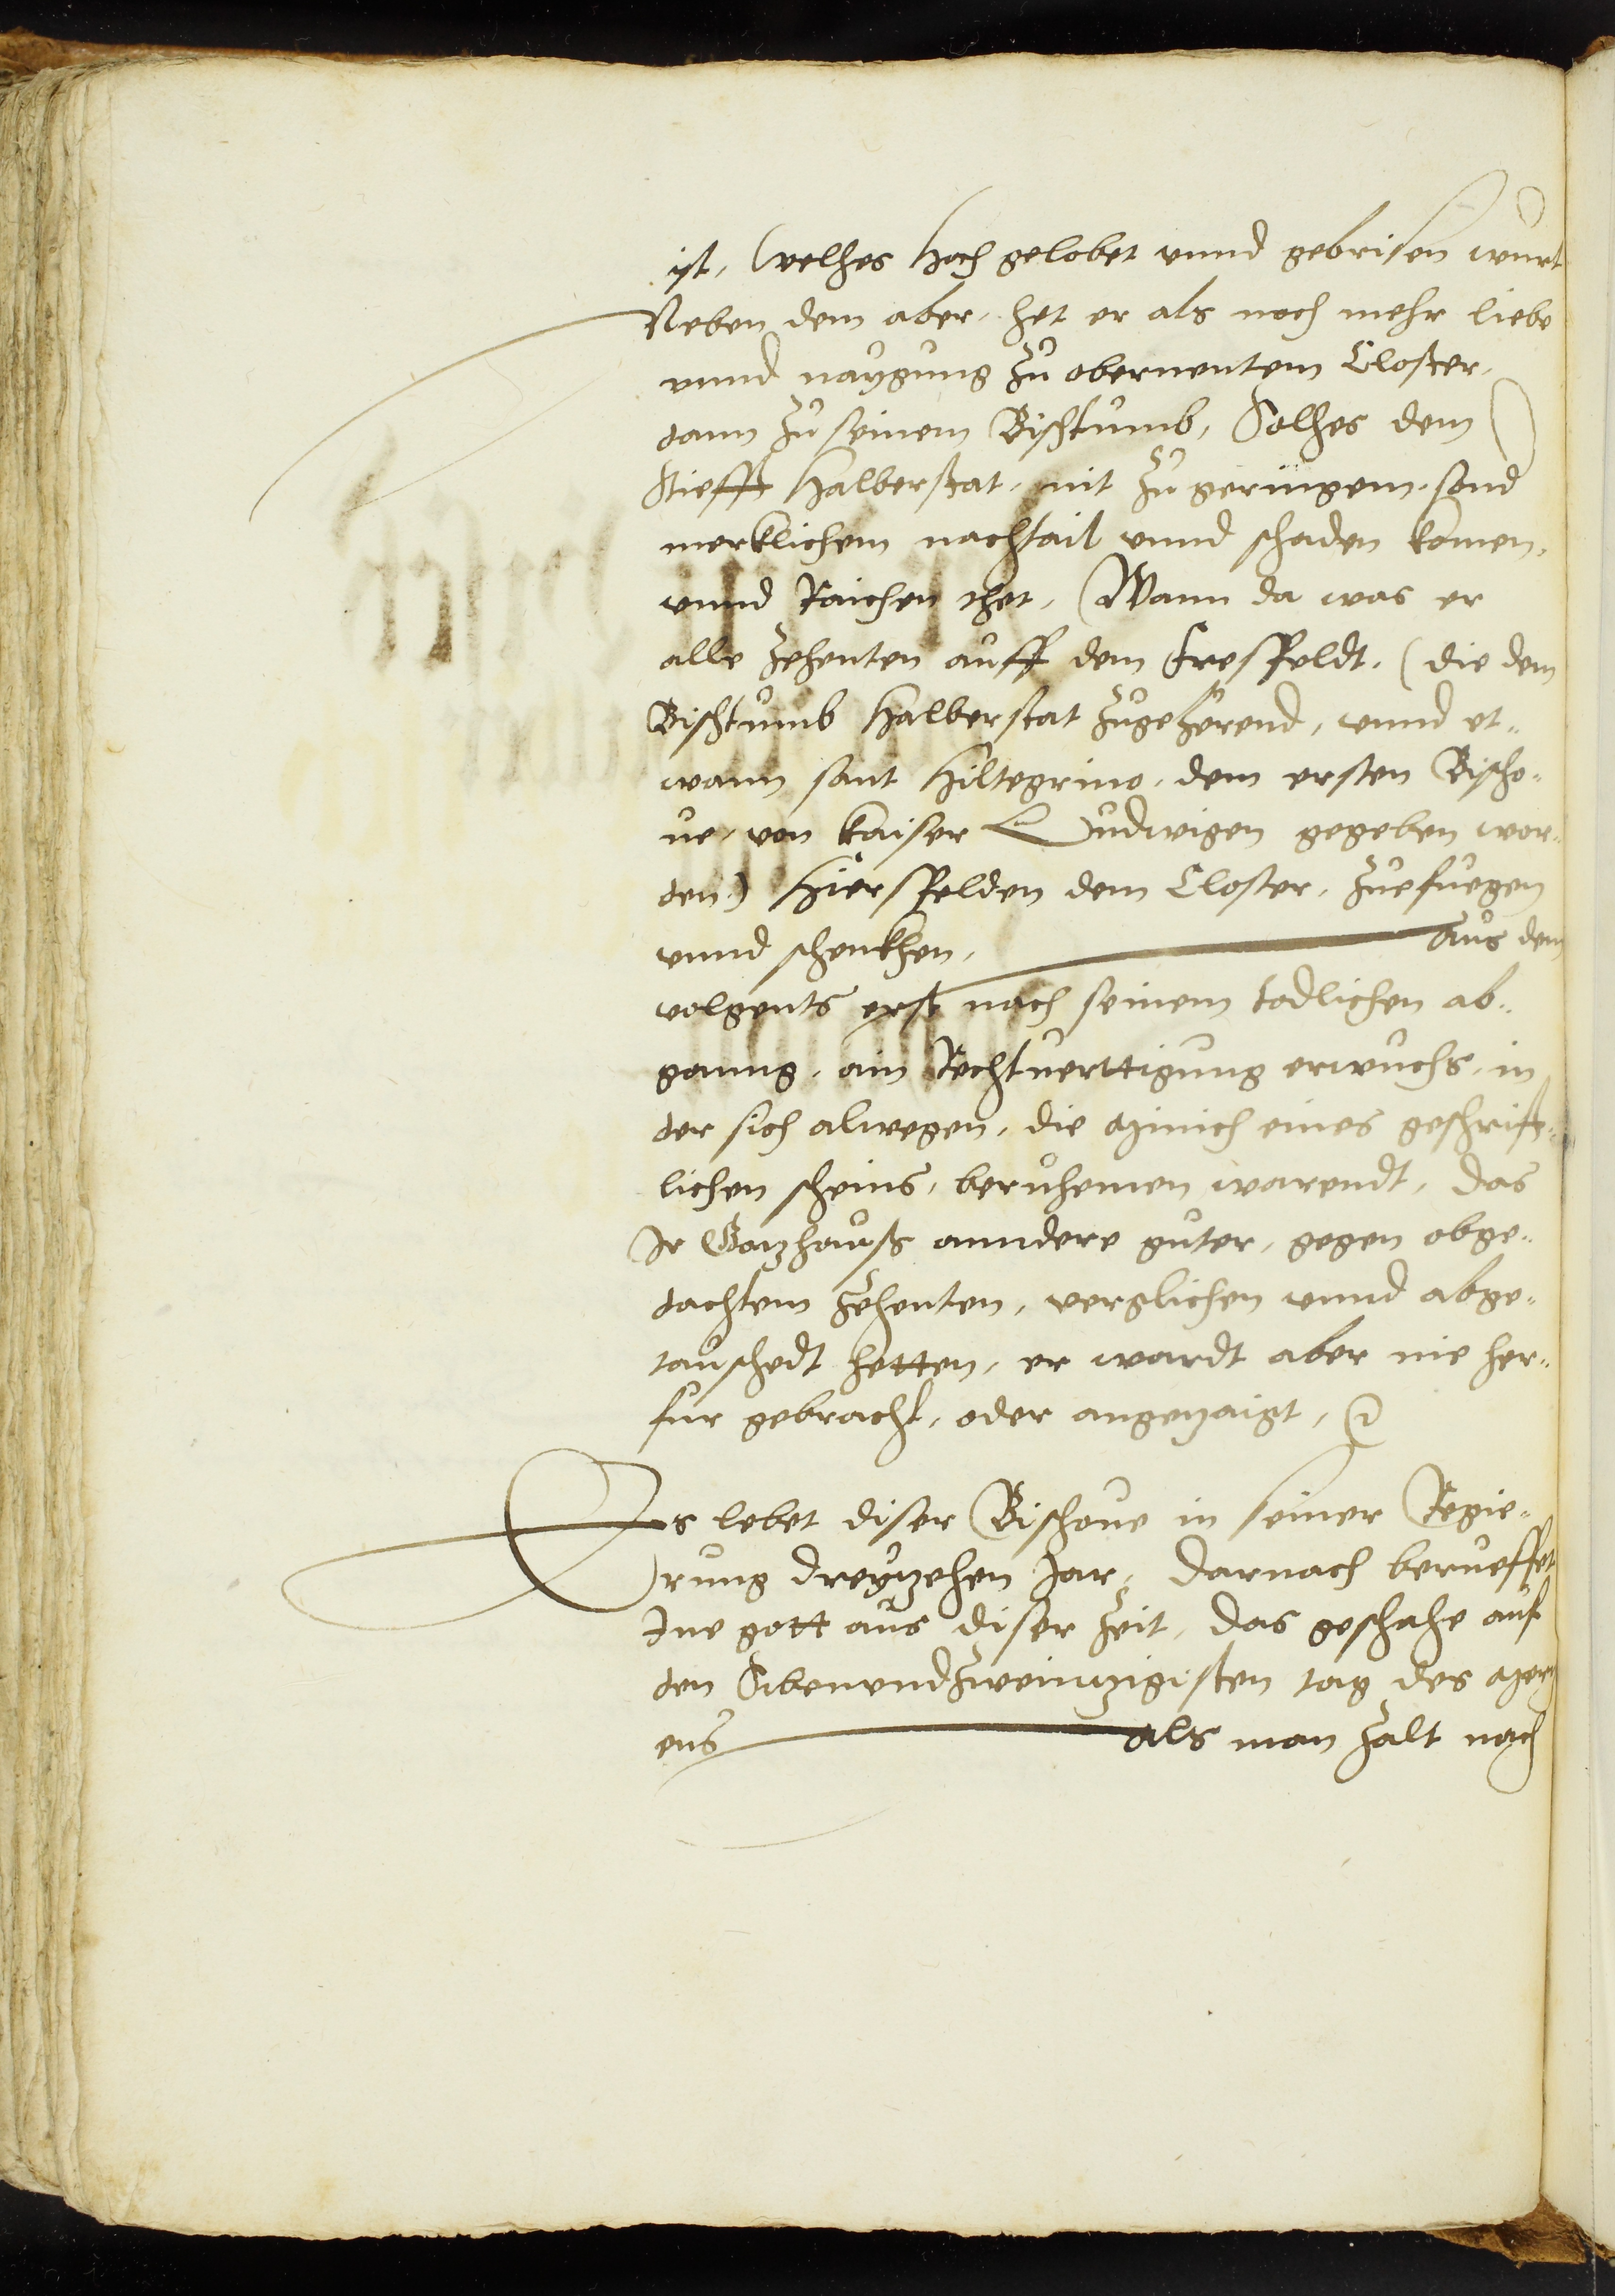 ist, welhes hoch gelobet vnnd gebrisen wurt
Neben dem aber, het er als noch mehr liebe
vnnd naygung zu obernentem Closter,
dann zu seinem Bischtumb, Solhes dem
Stiefft Halberstat, nit zu geringem, sond
merklichem nachtail vnnd schaden komen,
vnnd Raichen thet, Wann da was er
alle zehenten auff dem Fresfeldt, (die dem
Bischtumb Halberstat zugehörend, vnnd et-
wann sant Hiltegrino, dem ersten Bischo-
ue, von kaiser Ludwigen gegeben wor-
den) Hiersfelden dem Closter, zuefuegen
vnnd schenkhen, Aus dem
volgents erst nach seinem todlichen ab-
ganng, ain Rechtuerttigung erwuchs, in
der sich alwegen, die Münich eines geschrifft-
lichen scheins, beruhemen warendt, das
Ir Gotzhauß anndere guter, gegen obge-
dachtem zehenten, verglichen vnnd abge-
tauschedt hetten, er wardt aber nie her-
fur gebracht, oder angezaigt,
Es lebet diser Bischoue in seiner Regie-
rung dreytzehen Jar, darnach berueffet
Ine gott aus diser zeit, das geschahe auf
den Sibenvndzweintzigisten tag des Mertz
ens Als man zalt nach